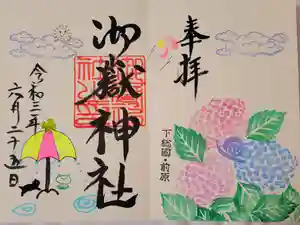 奉拝
下総國・前原
御嶽神社
令和三年
六月二十五日